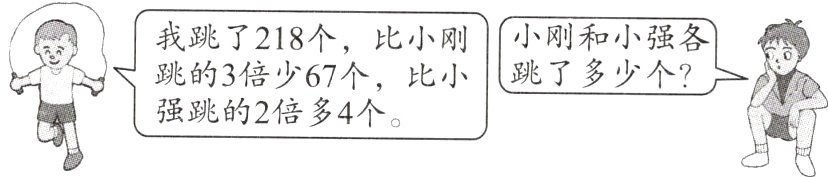 我跳了218个，比小刚
跳的3倍少67个，比小
强跳的2倍多4个。
小刚和小强各
跳了多少个？